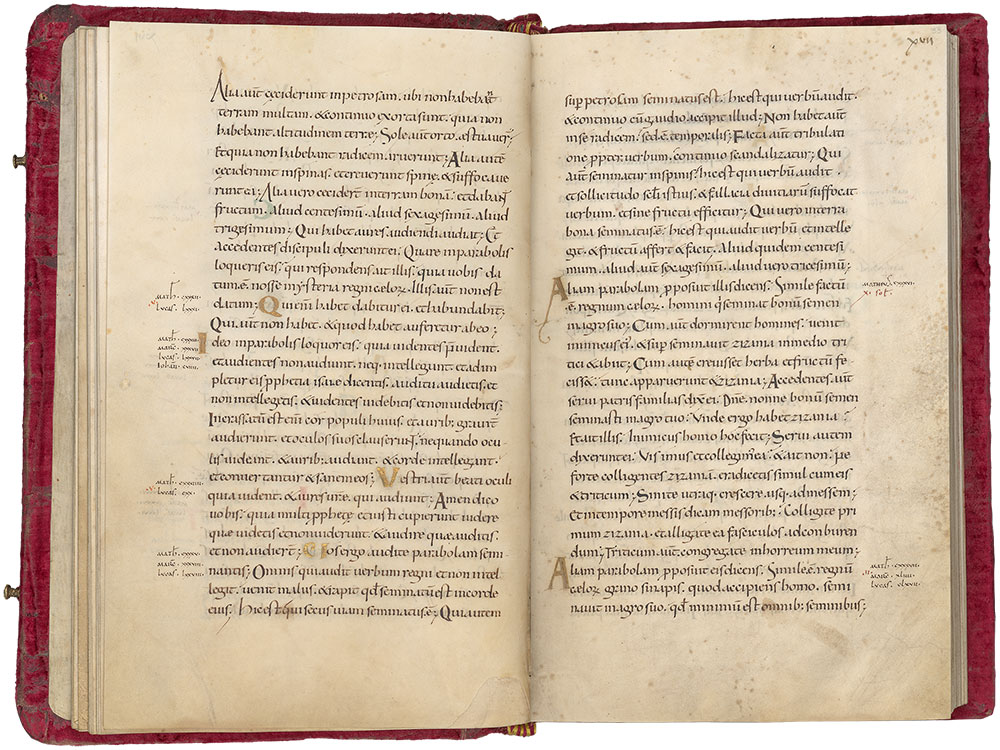 Alia aūt ceciderunt inpetrosam. ubi nonhabebaꝶt
terram multam. &continuo exorta sunt. quia non
habebant altitudinem terre; Sole aūt orto. aestuauer͛.
Et quia non habebant radicem. aruerunt; Alia autē
ceciderunt inspinas. etcreuerunt spine. &suffocaue
runt ea; Alia uero ceciderī interram bonā. etdabant
fructum. aliud centesimū. aliud sexagesimū. aliud
trigesimum; Qui habet aures. audiendi audiat; Et
accedentes discipuli dixerunt ei; Quare inparabolis
loqueris eis; qui respondens. ait illis; quia uobis da
tumē. nosse mysteria regni celorꝝ. Illis aūt nonest
datum; Quienī habet dabitur ei. et habundabit;
Qui. aūt non habet. &quod habet auferetur abeo;
Ideo inparabolis loquor eis. quia uidentes ñ uident.
etaudientes nonaudiunt. neq; intellegunt. etadim
pletur eis pphetia isaie dicentis. auditu audietis. et
non intellegetis. &uidentes uidebitis etnonuidebitis;
Incrassatū est enī cor populi huius. etaurib; grauiꝶt
audierunt. etoculos suos clauserunt; nequando ocu
lis uideant. &aurib; audiant. &corde intellegant.
etconuertantur &sanem eos; Vestri aūt beati oculi
quia uident. &aures uīæ. qui audiunt; Amen dico
uobis. quia multi pphetę etiusti cupierunt uidere
quæ uidetis etnonuiderunt. &audire quæ auditis.
etnon audierī; Uos ergo audite parabolam semi
nantis; Omnis qui audit uerbum regni et non intel
legit. uenit malus. &rapit qd seminatū est incorde
eius; hic est qui secus uiam seminatus ē; Qui autem
Math̄ · cxxxii ·
Lucas · lxxvii ·
Math̄ · cxxxiii ·
Marc · xxxvii ·
Lucas · lxxvii ·
Iohan̄ · cviiii ·
Math̄ · cxxxiiii ·
Lucas · cxx ·
Math̄ · cxxxv ·
Marc · xxxviii ·
Lucas · lxxviii ·
xvii
sup petrosam seminatus est. hic est qui uerbū audit.
&continuo cū gaudio accipit illud; Non habet aūt
inse radicem. sed ē temporalis; Facta aūt tribulati
one ppter uerbum. continuo scandalizatur; Qui
aūt seminatur inspinis. hic est qui uerbū audit.
et sollicitudo scl̄i istius. &fallacia diuitiarū suffocat
uerbum. etsine fructu efficitur; Qui uero interra
bona seminatus ē; hic est qui audit uerbū etintelle
git. &fructū affert &facit. Aliud quidem centesi
mum. aliud aūt sexagesimū. aliud uero tricesimū;
Aliam parabolam pposuit illis dicens; Simile factū
ē regnum celorꝝ. homini q̄ seminat bonū semen
inagro suo; Cum. aūt dormirent homines. uenit
inimicus ei; &sup seminauit zizania inmedio tri
tici &abiit; Cum autē creuisset herba etfructū fe
cisset. tunc apparuerunt &zizania; Accedentes aūt
serui patrisfamilias dix̄ ei. Dnē. nonne bonū semen
seminasti inagro tuo; Vnde ergo habet zizania;
Et ait illis. Inimicus homo hoc fecit; Serui autem
dixerunt ei. Vis imus et colligim̄ ea. &ait non; ne
forte colligentes zizania. eradicetis simul cum eis
&triticum; Sinite utraq; crescere usq; admessem;
Et intempore messis dicam messorib; Colligite pri
mum zizania. etalligate ea fasciculos adconburen
dum; Triticum aūt. congregate inhorreum meum;
Aliam parabolam pposuit eis dicens; Simile ē regnū
celorꝝ grano sinapis. quod accipiens homo. semi
nauit inagro suo; qd minimū est omnib; seminibus;
Math̄ · cxxxvi ·
x · sol̄ ·
Math̄ · cxxxvii ·
Marc · xliiii ·
Lucas · clxvii ·